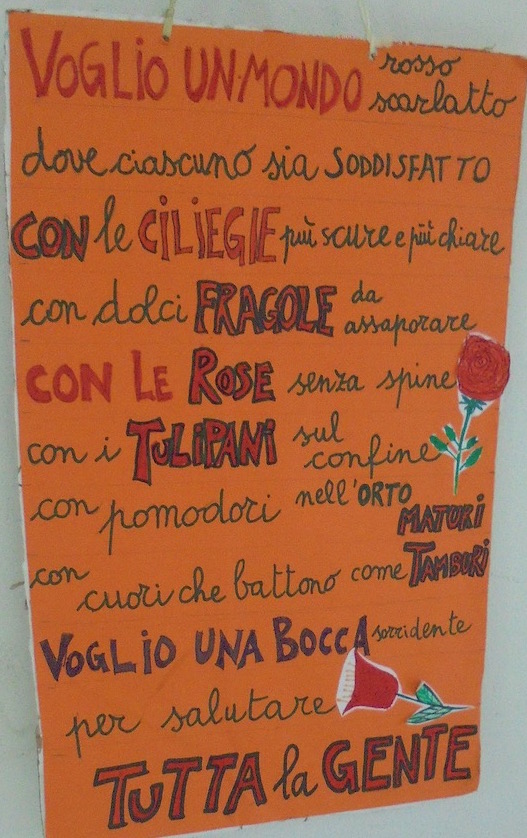 VOGLIO UN·MONDO rosso scarlatto
dove ciascuno sia SODDISFATTO
CON le CILIEGIE più scure e più chiare
con dolci FRAGOLE da assaporare
CON LE ROSE senza spine
con i TULIPANI sul confine
con pomodori nell'ORTO MATURI
con cuori che battono come TAMBURI
VOGLIO UNA BOCCA sorridente
per salutare
TUTTA la GENTE